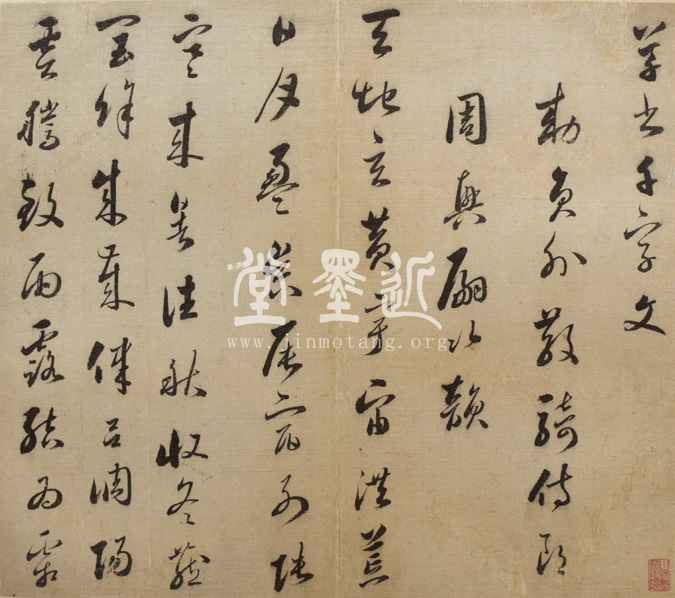 草書千字文
勅員外散騎侍郎
周興嗣次韻
天地玄黃宇宙洪荒
日月盈昃辰宿列張
寒來暑往秋收冬藏
閏餘成歲律呂調陽
雲騰致雨露結為霜
近墨堂
www.jinmotang.org